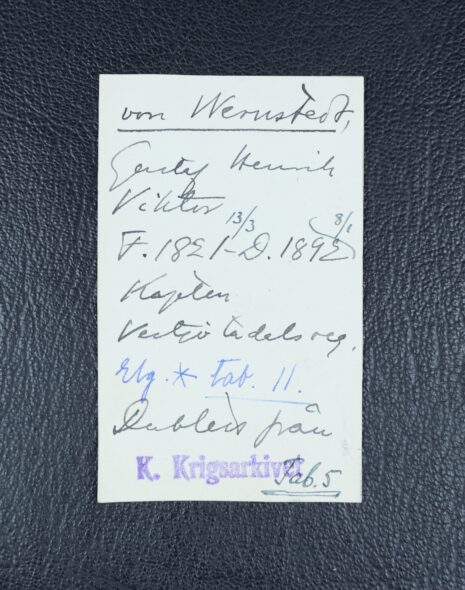 von Wernstedt,
Gustaf Henrik
Viktor
13/3 8/1
F. 1821-D. 1892
Kapten
Vestgötadelsreg.
Elg. * tab. 11.
Dublett från
K. Krigsarkivet
Tab. 5